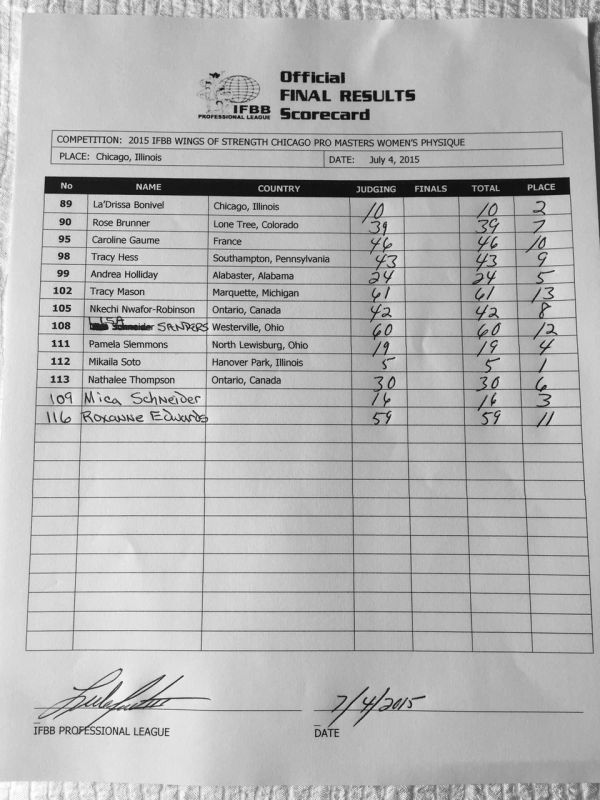 IFBB
PROFESSIONAL LEAGUE
Official
FINAL RESULTS
Scorecard
COMPETITION: 2015 IFBB WINGS OF STRENGTH CHICAGO PRO MASTERS WOMEN'S PHYSIQUE
PLACE: Chicago, Illinois DATE: July 4, 2015
No NAME COUNTRY JUDGING FINALS TOTAL PLACE
89 La'Drissa Bonivel Chicago, Illinois 10 10 2
90 Rose Brunner Lone Tree, Colorado 39 39 7
95 Caroline Gaume France 46 46 10
98 Tracy Hess Southampton, Pennsylvania 43 43 9
99 Andrea Holliday Alabaster, Alabama 24 24 5
102 Tracy Mason Marquette, Michigan 61 61 13
105 Nkechi Nwafor-Robinson Ontario, Canada 42 42 8
108 LISA Schneider SANDERS Westerville, Ohio 60 60 12
111 Pamela Slemmons North Lewisburg, Ohio 19 19 4
112 Mikaila Soto Hanover Park, Illinois 5 5 1
113 Nathalee Thompson Ontario, Canada 30 30 6
109 Mica Schneider 16 16 3
116 Roxanne Edwards 59 59 11
7/4/2015
IFBB PROFESSIONAL LEAGUE DATE